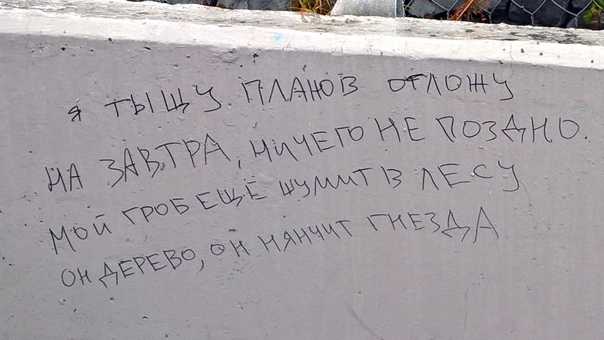 Я ТЫЩУ ПЛАНОВ ОТЛОЖУ
НА ЗАВТРА, НИЧЕГО НЕ ПОЗДНО.
МОЙ ГРОБ ЕЩЁ ШУМИТ В ЛЕСУ
ОН ДЕРЕВО, ОН НЯНЧИТ ГНЕЗДА